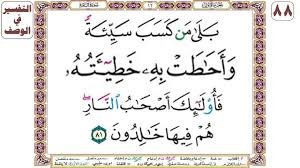 التفسير
في
الوصف
٨٨
بَلَىٰ مَن كَسَبَ سَيِّئَةً
وَأَحَاطَتْ بِهِۦ خَطِيٓـَٔتُهُۥ
فَأُو۟لَٰٓئِكَ أَصْحَٰبُ ٱلنَّارِ ۖ
هُمْ فِيهَا خَٰلِدُونَ ٨١